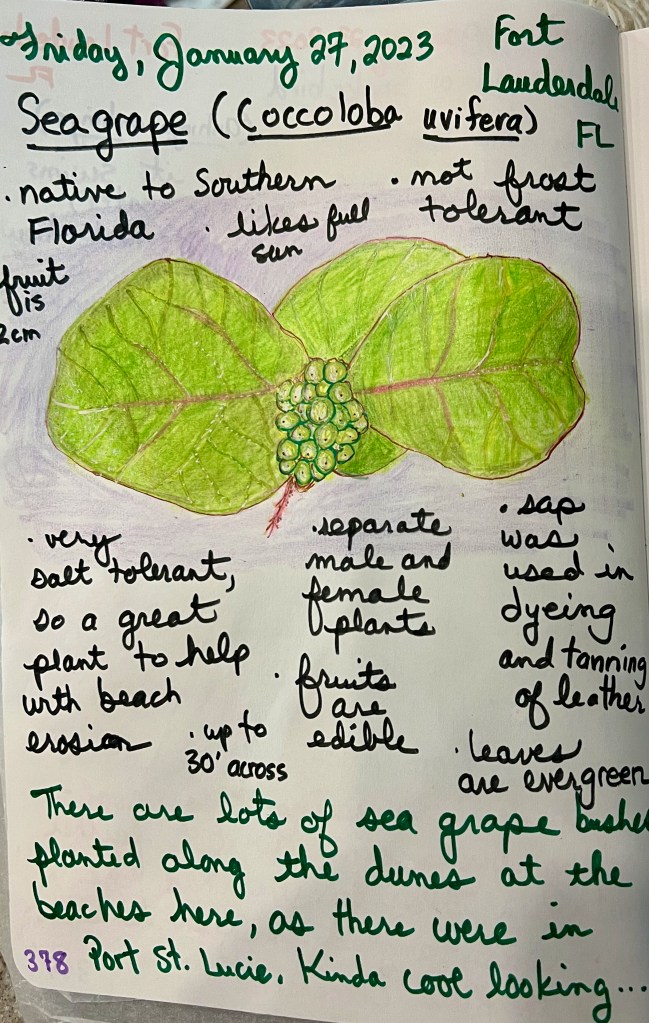 Friday, January 27, 2023
Fort
Lauderdale
FL
Seagrape (Coccoloba uvifera)
· native to Southern
Florida
· likes full
sun
· not frost
tolerant
fruit
is
2cm
· very
salt tolerant,
so a great
plant to help
with beach
erosion
· up to
30' across
· separate
male and
female
plants
· fruits
are
edible
· sap
was
used in
dyeing
and tanning
of leather
· leaves
are evergreen
There are lots of sea grape bushes
planted along the dunes at the
beaches here, as there were in
Port St. Lucie. Kinda cool looking...
378